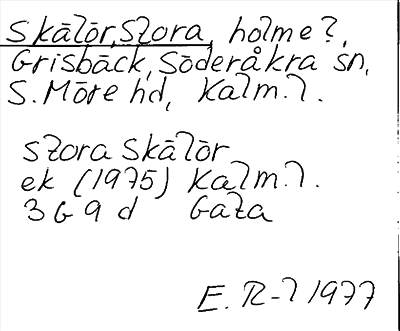 Skälör, Stora, holme?,
Grisbäck, Söderåkra sn,
S. Möre hd, Kalm. l.
Stora Skälör
ek (1975) Kalm. l.
3 G 9 d Gata
E. R-l 1977